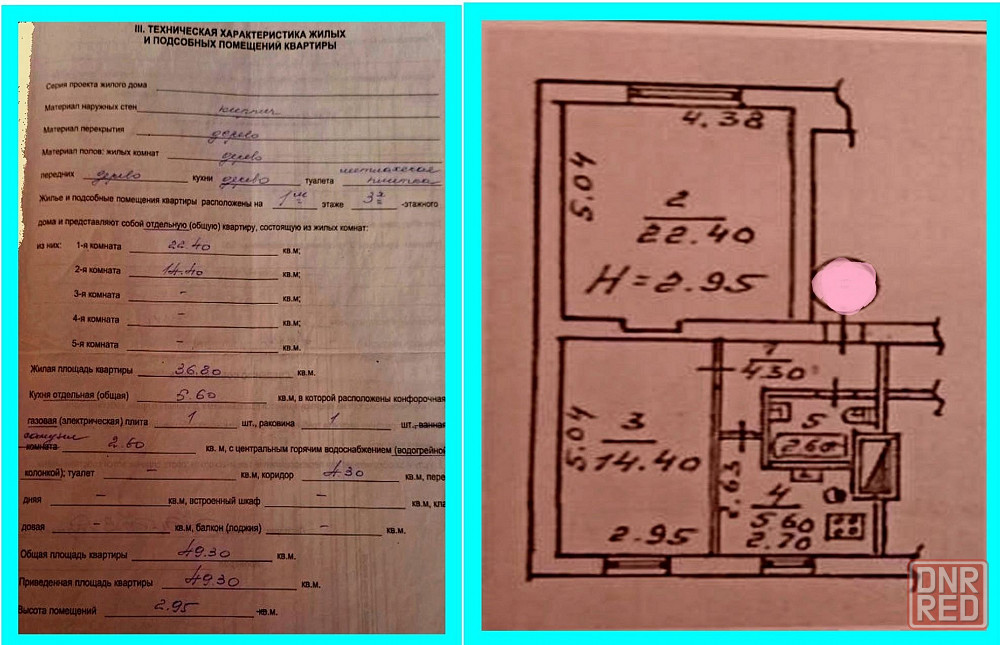 III. ТЕХНИЧЕСКАЯ ХАРАКТЕРИСТИКА ЖИЛЫХ
И ПОДСОБНЫХ ПОМЕЩЕНИЙ КВАРТИРЫ
Серия проекта жилого дома
Материал наружных стен кирпич
Материал перекрытия дерево
Материал полов: жилых комнат дерево
передних дерево кухни дерево туалета метлахская плитка
Жилые и подсобные помещения квартиры расположены на 1м этаже 3х -этажного
дома и представляют собой отдельную (общую) квартиру, состоящую из жилых комнат:
из них: 1-я комната 22.40 кв.м;
2-я комната 14.40 кв.м;
3-я комната – кв.м;
4-я комната – кв.м;
5-я комната – кв.м.
Жилая площадь квартиры 36.80 кв.м.
Кухня отдельная (общая) 5.60 кв.м, в которой расположены конфорочная
газовая (электрическая) плита 1 шт., раковина 1 шт., ванная
санузел
комната 2.60 кв. м, с центральным горячим водоснабжением (водогрейной
колонкой); туалет – кв.м, коридор 4.30 кв.м, пере
дняя – кв.м, встроенный шкаф – кв.м, кла
довая – кв.м, балкон (лоджия) – кв.м.
Общая площадь квартиры 49.30 кв.м.
Приведенная площадь квартиры 49.30 кв.м.
Высота помещений 2.95 кв.м.
4.38
5.04
2
22.40
H=2.95
1
4.30
5.04
3
14.40
2.95
5
2.60
2.63
4
5.60
2.70
DNR
RED